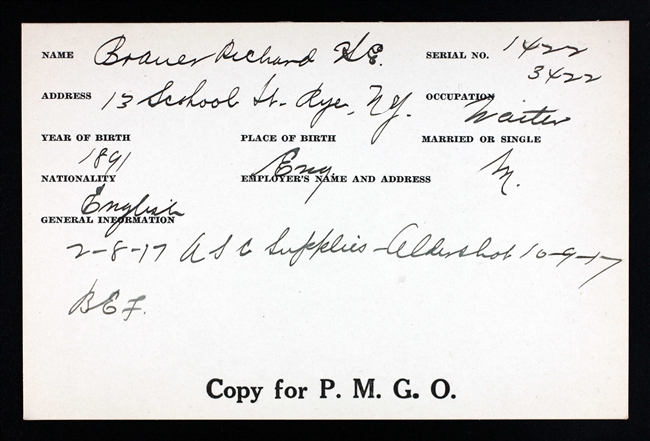 NAME Brauer Richard H.G. SERIAL NO. 1422
3422
ADDRESS 13 School St. Rye, N.Y. OCCUPATION
Waiter
YEAR OF BIRTH PLACE OF BIRTH MARRIED OR SINGLE
1891 Eng. M.
NATIONALITY EMPLOYER'S NAME AND ADDRESS
English
GENERAL INFORMATION
2-8-17 A S C Supplies - Aldershot 10-9-17
B E F.
Copy for P. M. G. O.